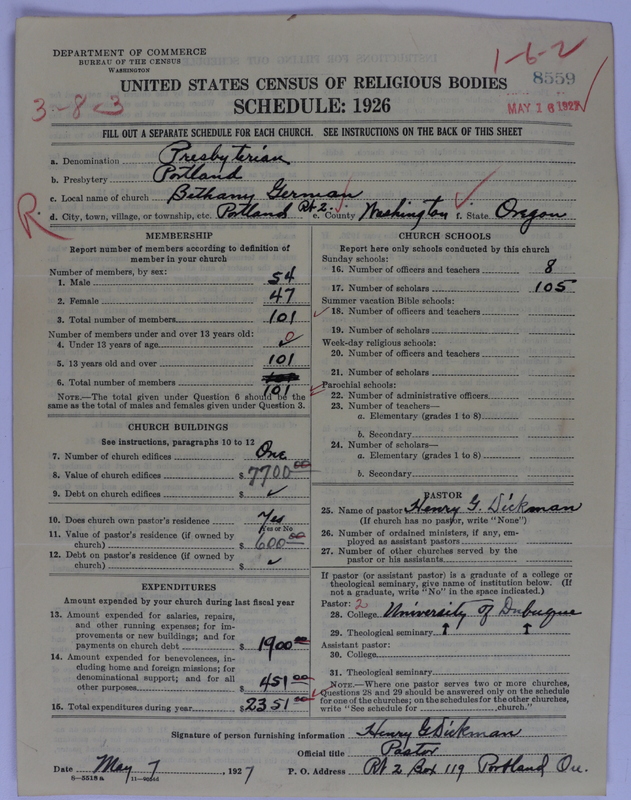 DEPARTMENT OF COMMERCE
BUREAU OF THE CENSUS
WASHINGTON
1-6-2
8559
3-8-3
MAY 16 1927
UNITED STATES CENSUS OF RELIGIOUS BODIES
SCHEDULE: 1926
FILL OUT A SEPARATE SCHEDULE FOR EACH CHURCH. SEE INSTRUCTIONS ON THE BACK OF THIS SHEET
a. Denomination Presbyterian
b. Presbytery Portland
c. Local name of church Bethany German
R. d. City, town, village, or township, etc. Portland Rt 2. e. County Washington f. State Oregon
MEMBERSHIP
Report number of members according to definition of
member in your church
Number of members, by sex:
1. Male 54
2. Female 47
3. Total number of members 101
Number of members under and over 13 years old:
4. Under 13 years of age 0
5. 13 years old and over 101
6. Total number of members 101
NOTE.—The total given under Question 6 should be the
same as the total of males and females given under Question 3.
CHURCH BUILDINGS
See instructions, paragraphs 10 to 12
7. Number of church edifices One
8. Value of church edifices $ 7700 00
9. Debt on church edifices $ ✓
10. Does church own pastor's residence Yes
Yes or No
11. Value of pastor's residence (if owned by
church) $ 600 00
12. Debt on pastor's residence (if owned by
church) $ ✓
EXPENDITURES
Amount expended by your church during last fiscal year
13. Amount expended for salaries, repairs,
and other running expenses; for im-
provements or new buildings; and for
payments on church debt $ 1900 00
14. Amount expended for benevolences, in-
cluding home and foreign missions; for
denominational support; and for all
other purposes $ 451 00
15. Total expenditures during year $ 2351 00
CHURCH SCHOOLS
Report here only schools conducted by this church
Sunday schools:
16. Number of officers and teachers 8
17. Number of scholars 105
Summer vacation Bible schools:
18. Number of officers and teachers
19. Number of scholars
Week-day religious schools:
20. Number of officers and teachers
21. Number of scholars
Parochial schools:
22. Number of administrative officers
23. Number of teachers—
a. Elementary (grades 1 to 8)
b. Secondary
24. Number of scholars—
a. Elementary (grades 1 to 8)
b. Secondary
PASTOR
25. Name of pastor Henry G. Dickman
(If church has no pastor, write "None")
26. Number of ordained ministers, if any, em-
ployed as assistant pastors
27. Number of other churches served by the
pastor or his assistants
If pastor (or assistant pastor) is a graduate of a college or
theological seminary, give name of institution below. (If
not a graduate, write "No" in the space indicated.)
Pastor: 2
28. College University of Dubuque
29. Theological seminary ↑ ↑
Assistant pastor:
30. College
31. Theological seminary
NOTE.—Where one pastor serves two or more churches,
Questions 28 and 29 should be answered only on the schedule
for one of the churches; on the schedules for the other churches,
write "See schedule for church."
Signature of person furnishing information Henry G Dickman
Official title Pastor
Date May 7, 1927 P. O. Address Rt 2 Box 119 Portland Ore.
8—5518 a